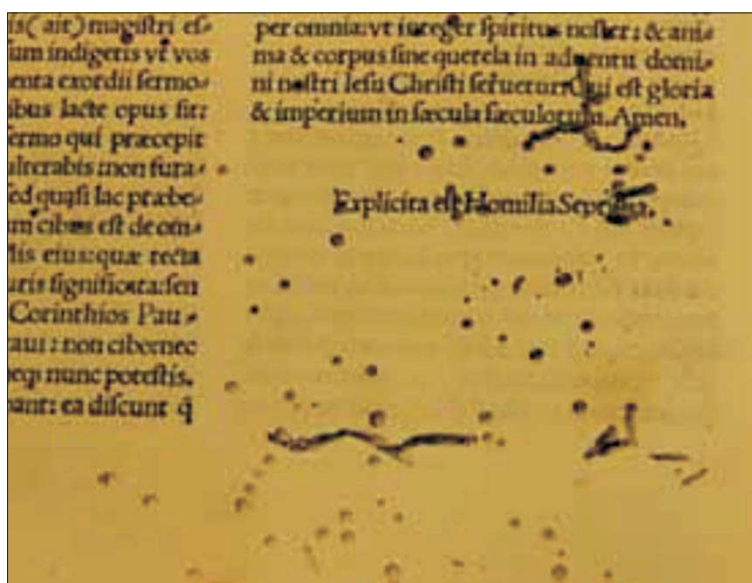 is(ait)magistri eſ⸗
ſum indigetis vt vos
menta exordii ſermo⸗
ibus lacte opus ſit:
ſermo qui præcepit
ulterabis:non fura⸗
ſed quaſi lac præbe⸗
cibus eſt de om⸗
lis eius:quæ recta
uris ſignificata:ſen
Corinthios Pau⸗
non cibo:nec
neqȝ nunc poteſtis.
ea diſcunt q̃
per omnia:vt integer ſpiritus noſter:& ani⸗
ma & corpus ſine querela in aduentu domi⸗
ni noſtri Ieſu Chriſti ſeruetur:cui eſt gloria
& imperium in ſæcula ſæculorum.Amen.
Explicita eſt Homilia Septima.